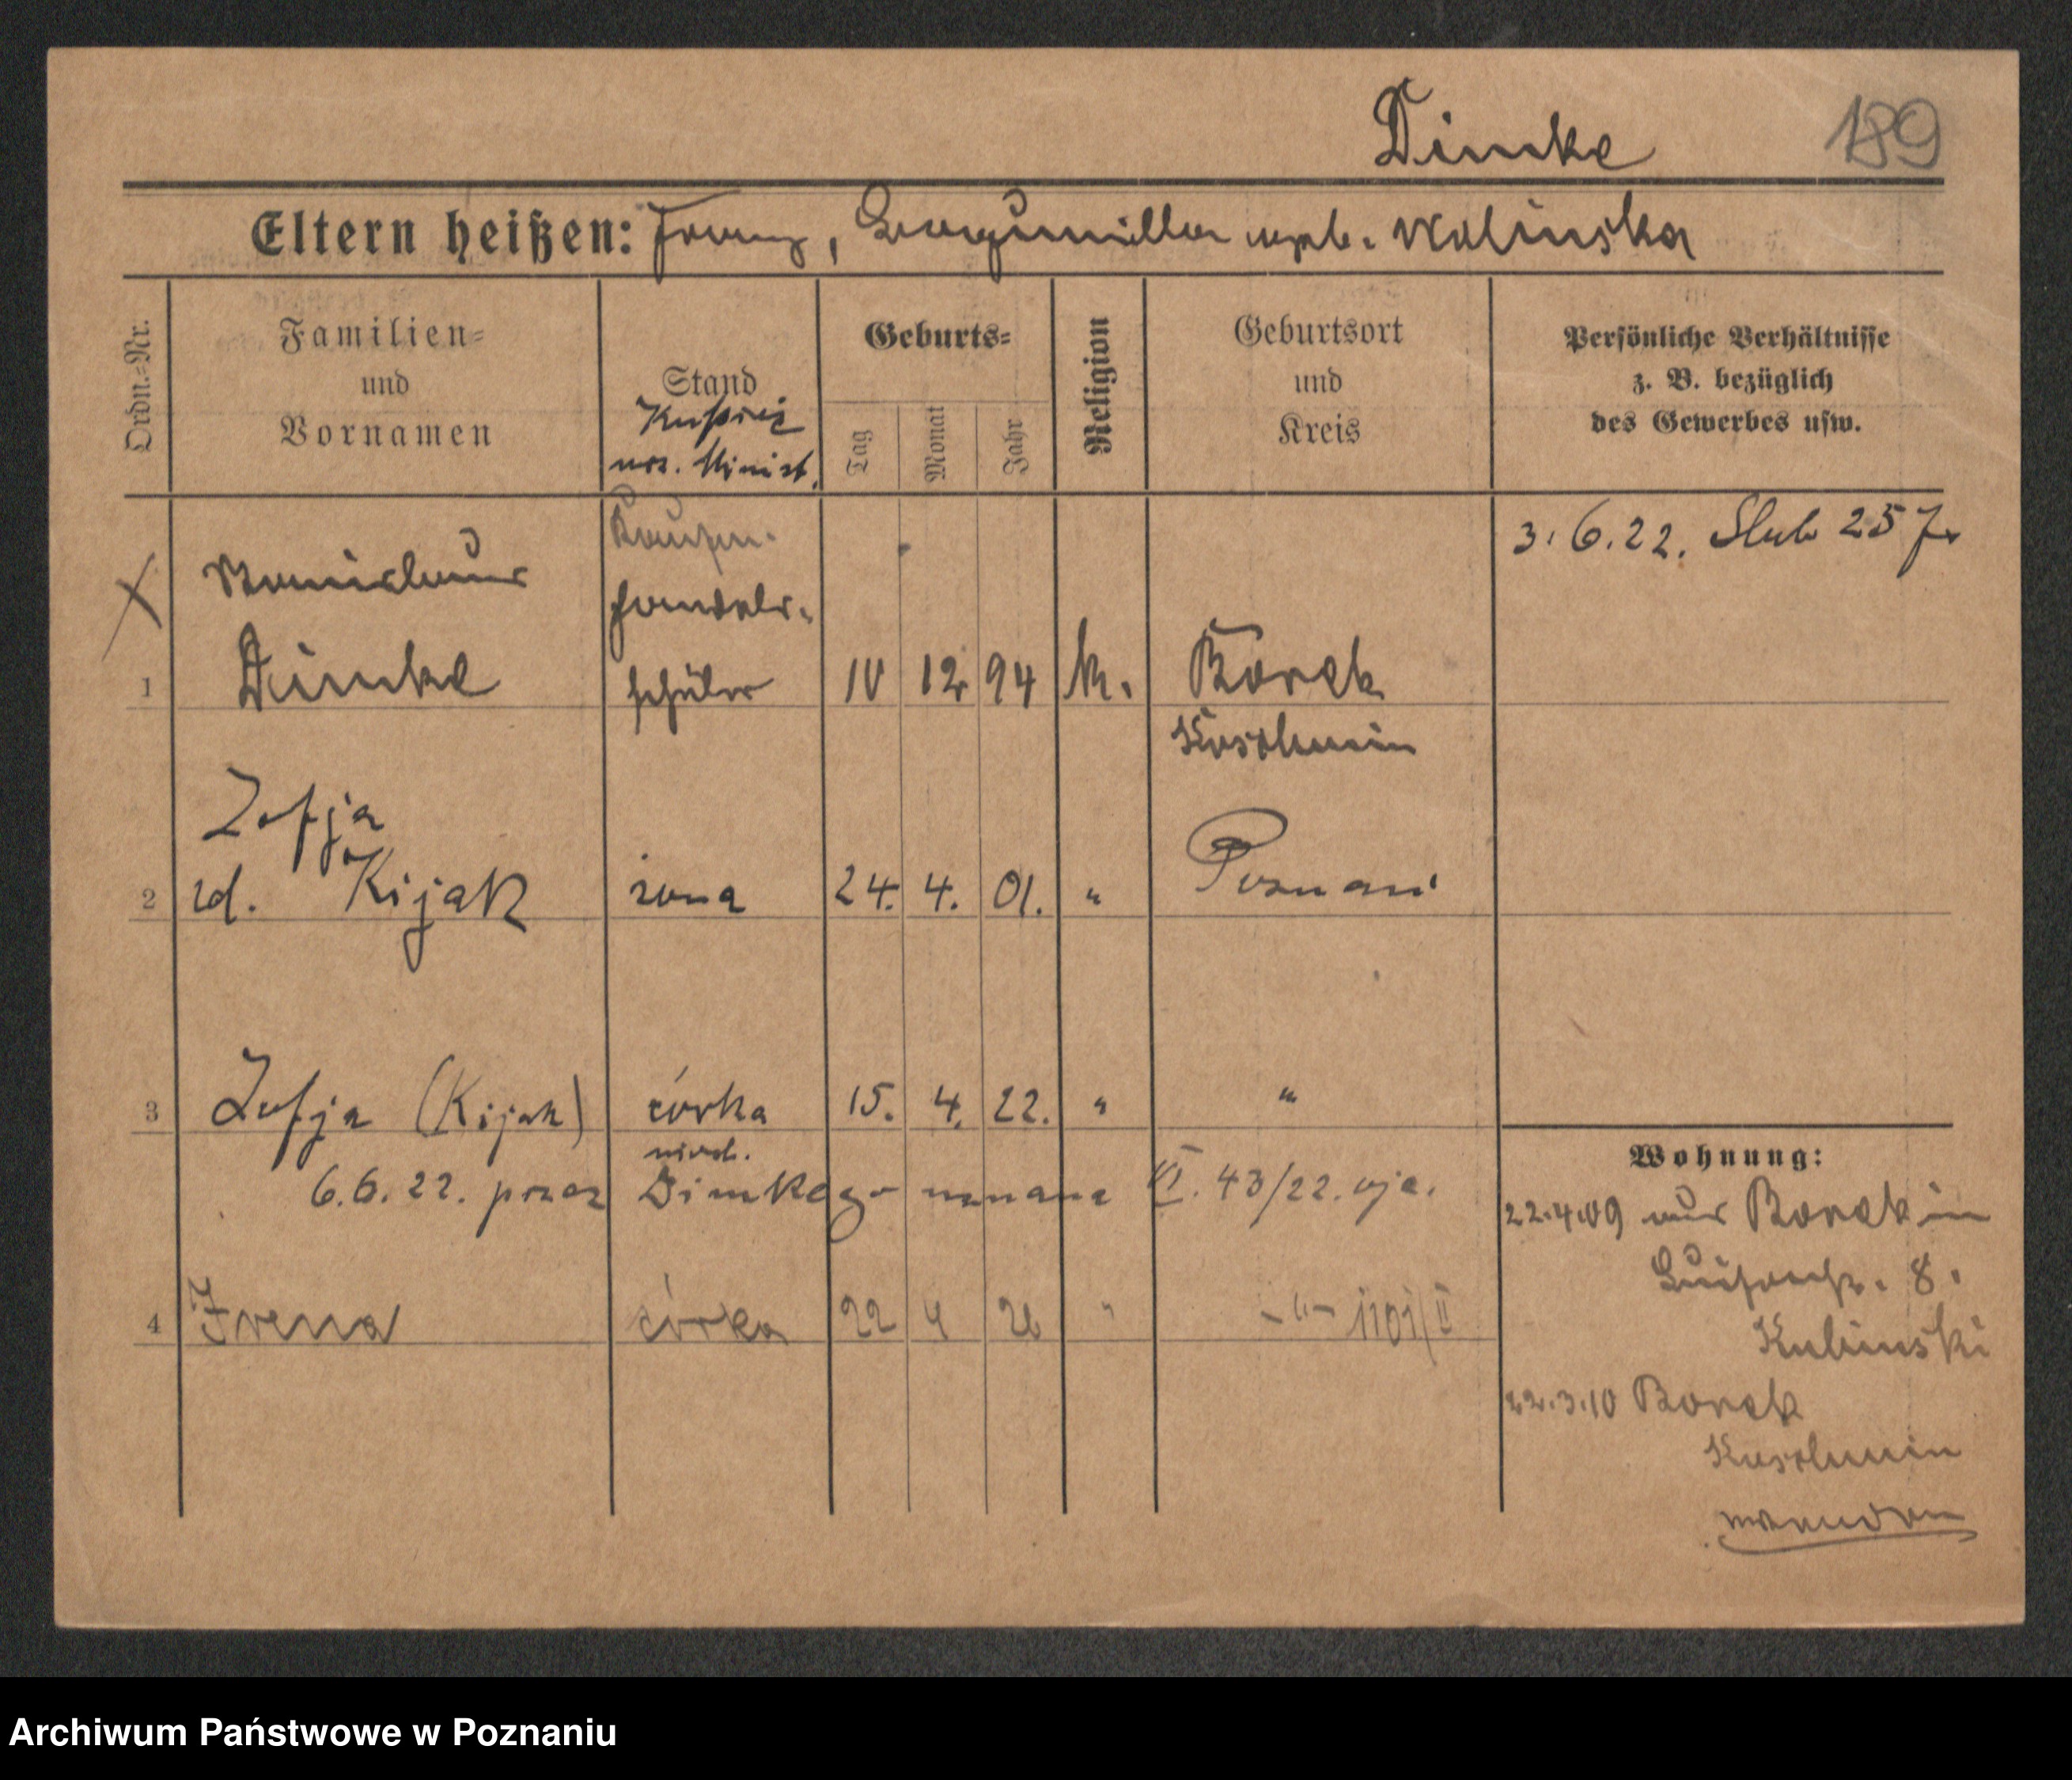 Dimke 189
Eltern heißen: Franz, Bogumilla geb. Wolinska
Ordn.=Nr.
Familien=
und
Vornamen
Stand
Geburts=
Tag
Monat
Jahr
Religion
Geburtsort
und
Kreis
Persönliche Verhältnisse
z. B. bezüglich
des Gewerbes usw.
Kupiec
3.6.22. Slub 257
Stanislaus
Handels-
1 Dimke schüler 10 12 94 k. Borek
Koschmin
Zofja
2 zd. Kijak żona 24. 4. 01. " Poznań
3 Zofja (Kijak) córka 15. 4. 22. " "
nieśl.
6.6.22. przez Dimkego uznana VI. 43/22. uje.
4 Irena córka 22 4 26 " -"- 1101/II
Wohnung:
22.4.09 aus Borek in
Luisenstr. 8.
Kubinski
22.3.10 Borek
Koschmin
wenden
Archiwum Państwowe w Poznaniu